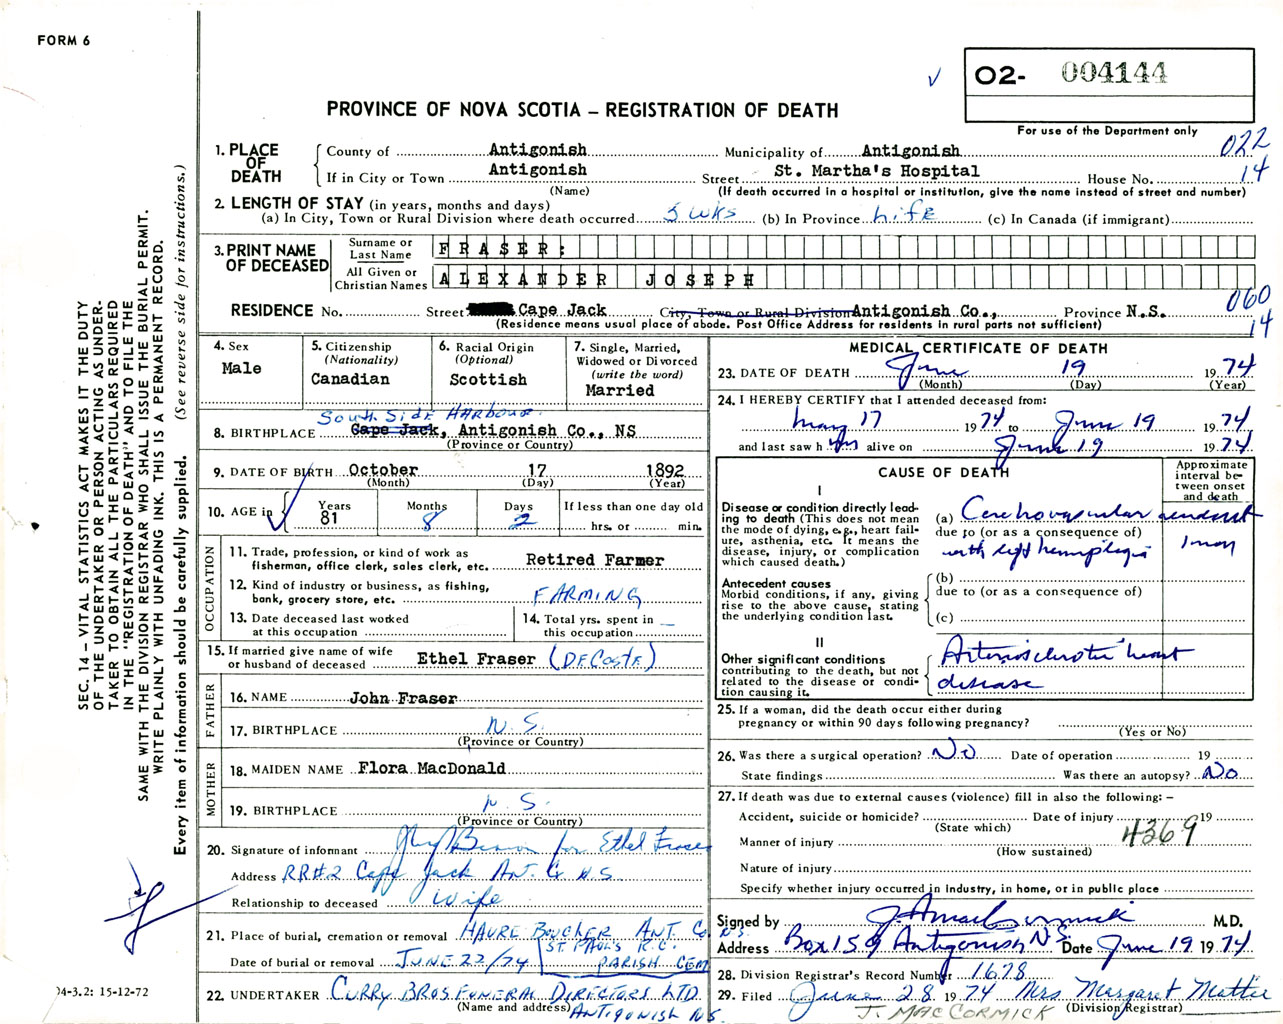 FORM 6
O2- 004144
For use of the Department only
PROVINCE OF NOVA SCOTIA – REGISTRATION OF DEATH
022
14
1. PLACE OF DEATH
County of Antigonish Municipality of Antigonish
If in City or Town Antigonish Street St. Martha's Hospital House No.
(Name) (If death occurred in a hospital or institution, give the name instead of street and number)
2. LENGTH OF STAY (in years, months and days)
(a) In City, Town or Rural Division where death occurred 5 wks (b) In Province Life (c) In Canada (if immigrant)
3. PRINT NAME OF DECEASED
Surname or Last Name FRASER:
All Given or Christian Names ALEXANDER JOSEPH
060
14
RESIDENCE No. Street Cape Jack City, Town or Rural Division Antigonish Co., Province N.S.
(Residence means usual place of abode. Post Office Address for residents in rural parts not sufficient)
4. Sex
Male
5. Citizenship
(Nationality)
Canadian
6. Racial Origin
(Optional)
Scottish
7. Single, Married,
Widowed or Divorced
(write the word)
Married
South Side Harbour
8. BIRTHPLACE Cape Jack, Antigonish Co., NS
(Province or Country)
9. DATE OF BIRTH October 17 1892
(Month) (Day) (Year)
10. AGE in
Years 81
Months 8
Days 2
If less than one day old
hrs. or min.
OCCUPATION
11. Trade, profession, or kind of work as
fisherman, office clerk, sales clerk, etc. Retired Farmer
12. Kind of industry or business, as fishing,
bank, grocery store, etc. FARMING
13. Date deceased last worked
at this occupation
14. Total yrs. spent in
this occupation
15. If married give name of wife
or husband of deceased Ethel Fraser (DECOSTE)
FATHER
16. NAME John Fraser
17. BIRTHPLACE N.S.
(Province or Country)
MOTHER
18. MAIDEN NAME Flora MacDonald
19. BIRTHPLACE N.S.
(Province or Country)
20. Signature of informant for Ethel Fraser
Address RR#2 Cape Jack Ant. Co N.S
Relationship to deceased Wife
21. Place of burial, cremation or removal HAVRE BOUCHER ANT. Co. N.S.
ST. PAUL'S R.C.
PARISH CEM
Date of burial or removal JUNE 22/74
22. UNDERTAKER CURRY BROS FUNERAL DIRECTORS LTD
(Name and address) ANTIGONISH N.S.
MEDICAL CERTIFICATE OF DEATH
23. DATE OF DEATH June 19 1974
(Month) (Day) (Year)
24. I HEREBY CERTIFY that I attended deceased from:
May 17 1974 to June 19 1974
and last saw him alive on June 19 1974
CAUSE OF DEATH
Approximate
interval be-
tween onset
and death
I
Disease or condition directly lead-
ing to death (This does not mean
the mode of dying, e.g., heart fail-
ure, asthenia, etc. It means the
disease, injury, or complication
which caused death.)
(a) Cerebrovascular accident
due to (or as a consequence of)
with left hemiplegia
Antecedent causes
Morbid conditions, if any, giving
rise to the above cause, stating
the underlying condition last.
(b)
due to (or as a consequence of)
(c)
II
Other significant conditions
contributing to the death, but not
related to the disease or condi-
tion causing it.
Arteriosclerotic heart
disease
25. If a woman, did the death occur either during
pregnancy or within 90 days following pregnancy?
(Yes or No)
26. Was there a surgical operation? No Date of operation 19
State findings Was there an autopsy? No
27. If death was due to external causes (violence) fill in also the following: –
Accident, suicide or homicide? Date of injury 19
(State which)
4369
Manner of injury
(How sustained)
Nature of injury
Specify whether injury occurred in industry, in home, or in public place
Signed by J. A. MacCormick M.D.
Address Box 159 Antigonish N.S. Date June 19 1974
28. Division Registrar's Record Number 1678
29. Filed June 28 1974 Mrs Margaret Mattie
(Division Registrar)
J. MACCORMICK
SEC. 14 – VITAL STATISTICS ACT MAKES IT THE DUTY
OF THE UNDERTAKER OR PERSON ACTING AS UNDER-
TAKER TO OBTAIN ALL THE PARTICULARS REQUIRED
IN THE "REGISTRATION OF DEATH" AND TO FILE THE
SAME WITH THE DIVISION REGISTRAR WHO SHALL ISSUE THE BURIAL PERMIT.
WRITE PLAINLY WITH UNFADING INK. THIS IS A PERMANENT RECORD.
Every item of information should be carefully supplied. (See reverse side for instructions.)
04-3.2: 15-12-72